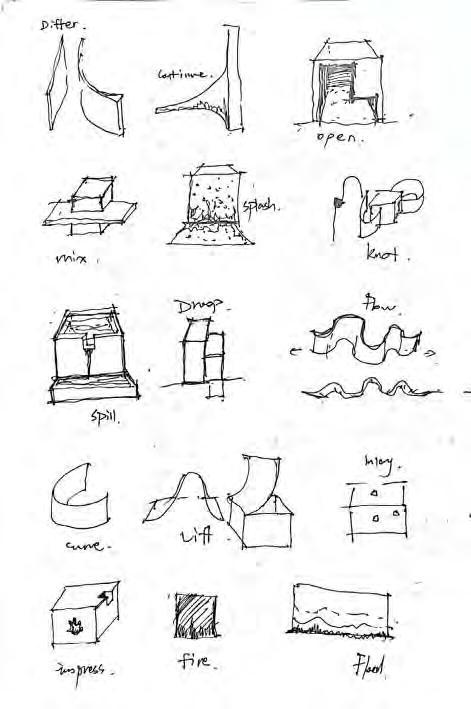 Differ.
Continue.
open.
mix.
splash.
knot.
Drop.
flow.
spill.
curve.
Lift
Inlay.
impress.
fire.
Flood.